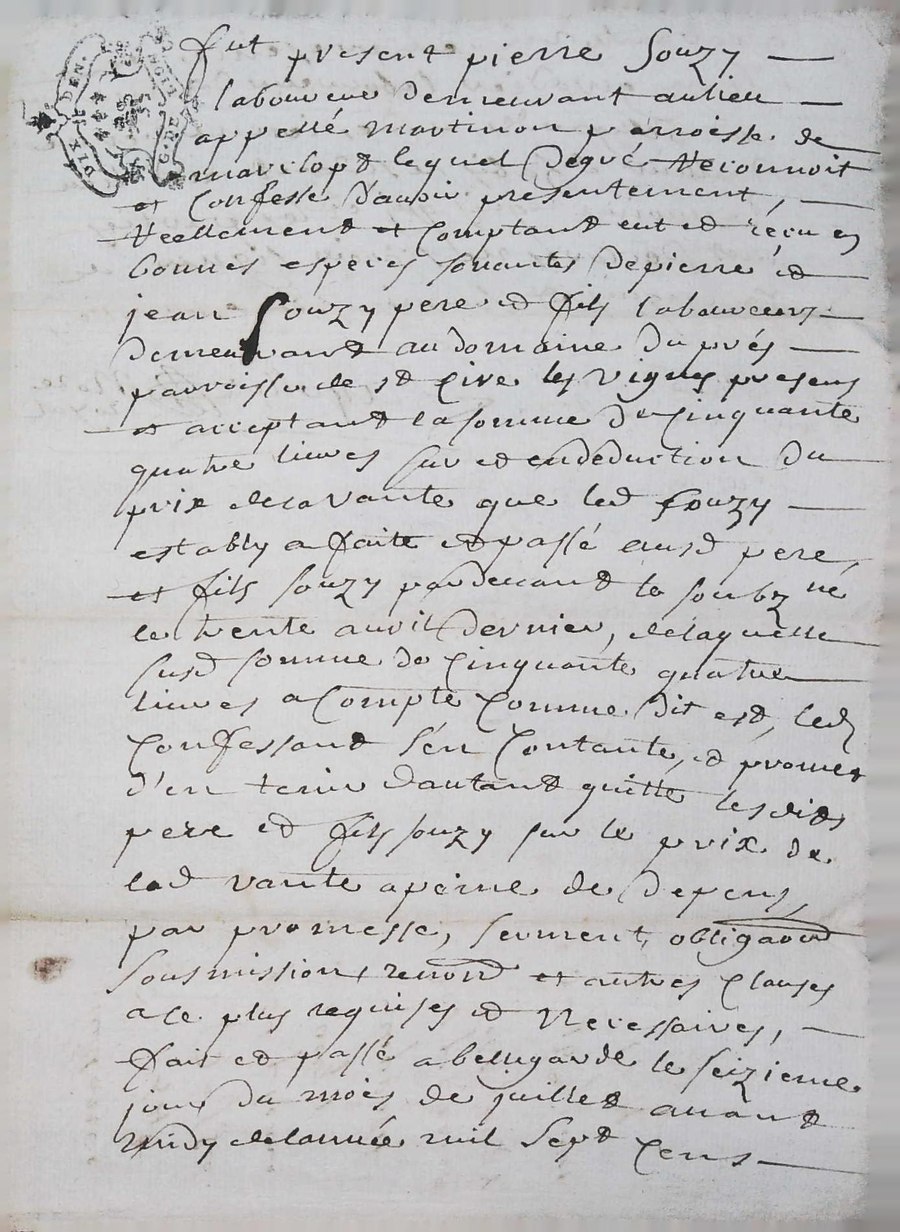 DIX DEN.
G. DE LION
fut present pierre Souzy
laboureur demeurant au lieu
appellé martinon parroisse de
marclopt lequel degré Reconnoit
et Confesse d'avoir presentement,
Reellement et Comptant eut et réçu en
bonnes especes sonantes de pierre et
jean Souzy pere et fils laboureurs
demeurant au domaine du prés
parroisse de st Cire les vignes presens
et acceptant la somme de Cinquante
quatre livres sur et en deduction du
prix de la vante que led Souzy
estably a faite et passé ausd pere,
et fils Souzy par devant le soubz né
le trente avril dernier, de laquelle
susd somme de Cinquante quatre
livres a Compte Comme dit est, led
Confessant s'en Contante, et promet
d'en tenir d'autant quitte lesdits
pere et fils souzy sur le prix de
lad vante a peine de depens,
par promesse, serment, obligaõn
sousmission, renonõn et autres Clauses
a ce plus requises et Necessaires,
fait et passé a bellegarde le seizieme
jour du mois de juillet avant
midy de l'année mil Sept Cens